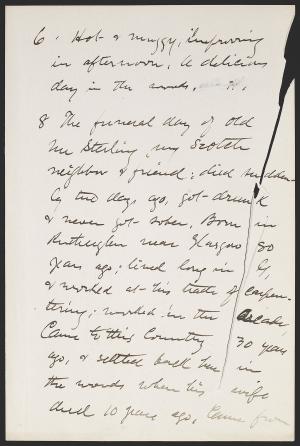 6. Hot & muggy, improving
in afternoon. A delicious
day in the woods.
8 The funeral day of old
Mr Sterling my Scotch
neighbor & friend; died sudden-
ly two days ago, got drunk
& never got sober. Born in
Rutherglen near Glasgow 80
years ago; lived long in G,
& worked at his trade of carpen-
tering; worked in the Arcade.
Came to this Country 30 years
ago, & settled back here in
the woods where his wife
died 10 years ago. Came from